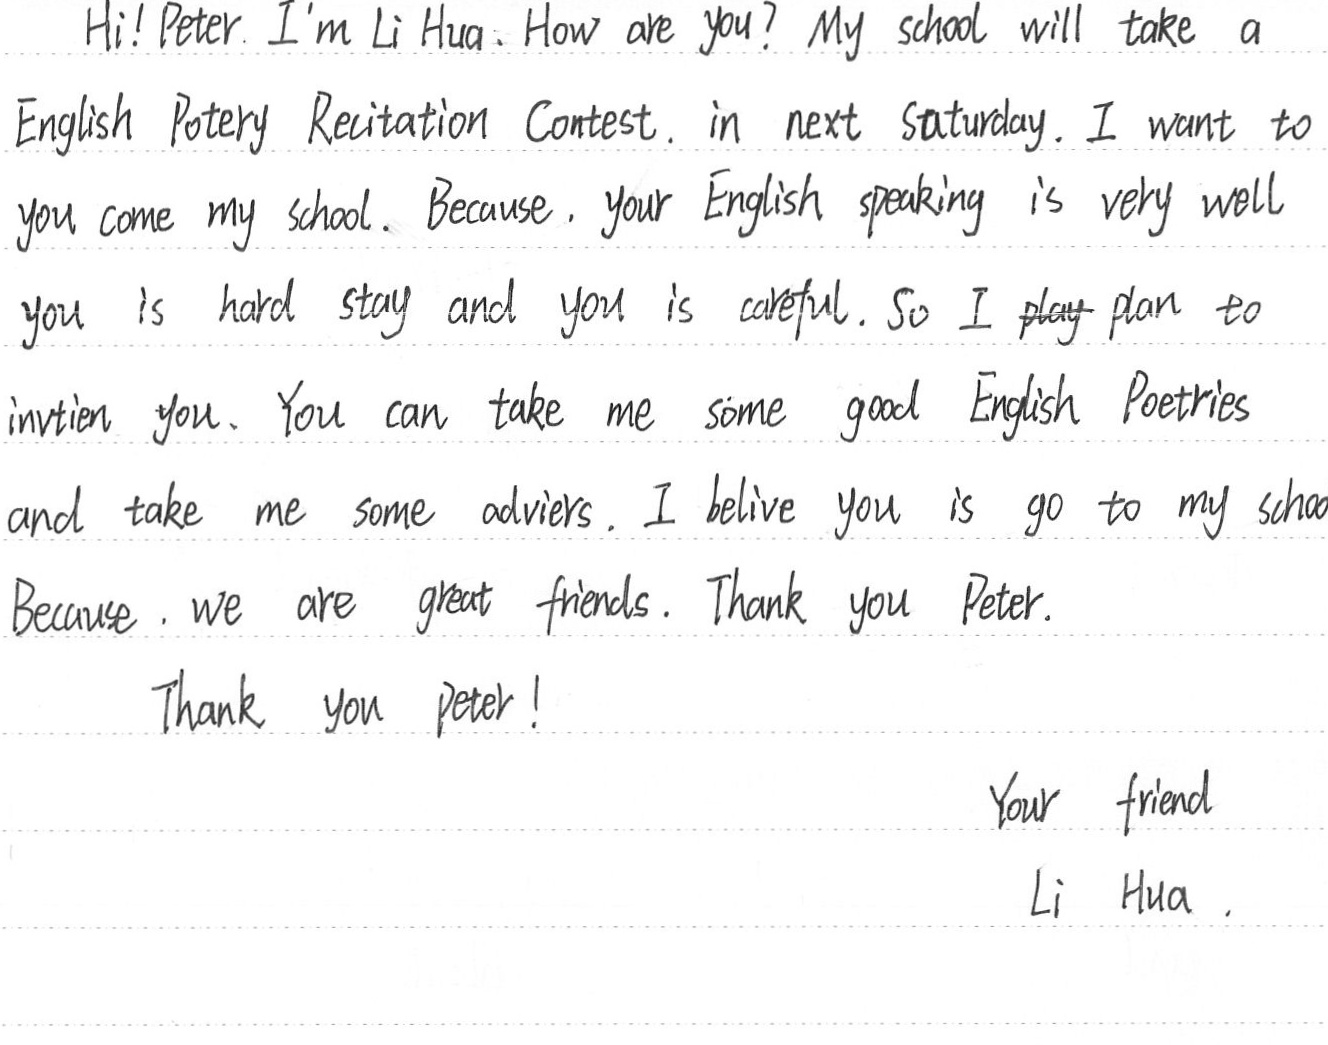 Hi! Peter. I'm Li Hua. How are you? My school will take a
English Potery Recitation Contest. in next Saturday. I want to
you come my school. Because. your English speaking is very well
you is hard stay and you is careful. So I play plan to
invtien you. You can take me some good English Poetries
and take me some adviers. I belive you is go to my schoo
Because. we are great friends. Thank you Peter.
Thank you peter!
Your friend
Li Hua.